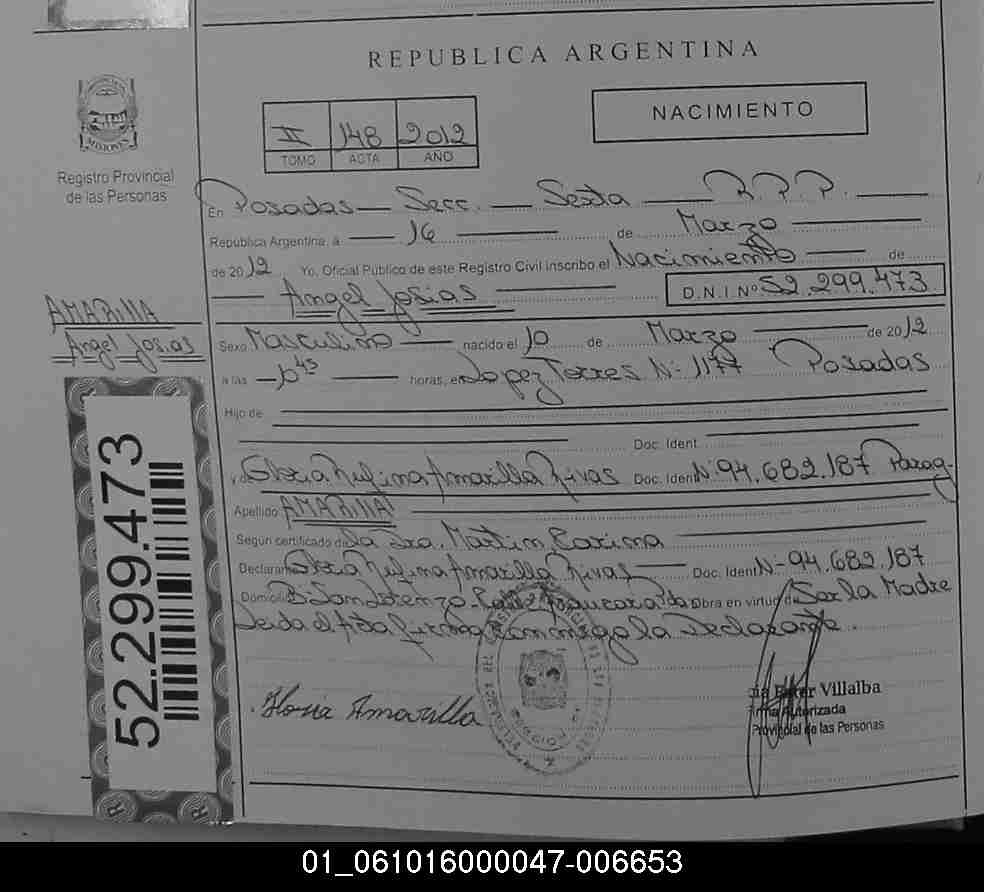 REPUBLICA ARGENTINA
NACIMIENTO
II 148 2012
TOMO ACTA AÑO
Registro Provincial
de las Personas
En Posadas — Secc. — Sexta — R.P.P.
República Argentina, a 16 de Marzo
de 2012 Yo, Oficial Público de este Registro Civil inscribo el Nacimiento de
Angel Josias D.N.I Nº 52.299.473
AMARILLA
Angel Josias
Sexo Masculino nacido el 10 de Marzo de 2012
a las 6 45 horas, en Lopez Torres Nº 1177 Posadas
Hijo de
Doc. Ident.
y de Gloria Rufina Amarilla Rivas Doc. Ident Nº 94.682.187 Parag-
Apellido AMARILLA
Según certificado de la Dra. Martin, Carina
Declarante Gloria Rufina Amarilla Rivas Doc. Ident Nº 94.682.187
Domicilio Bº San Lorenzo - Obra en virtud de Ser la Madre
Leida el Acta firma conmigo la Declarante.
52.299.473
Gloria Amarilla
Ester Villalba
Firma Autorizada
Provincial de las Personas
01_061016000047-006653